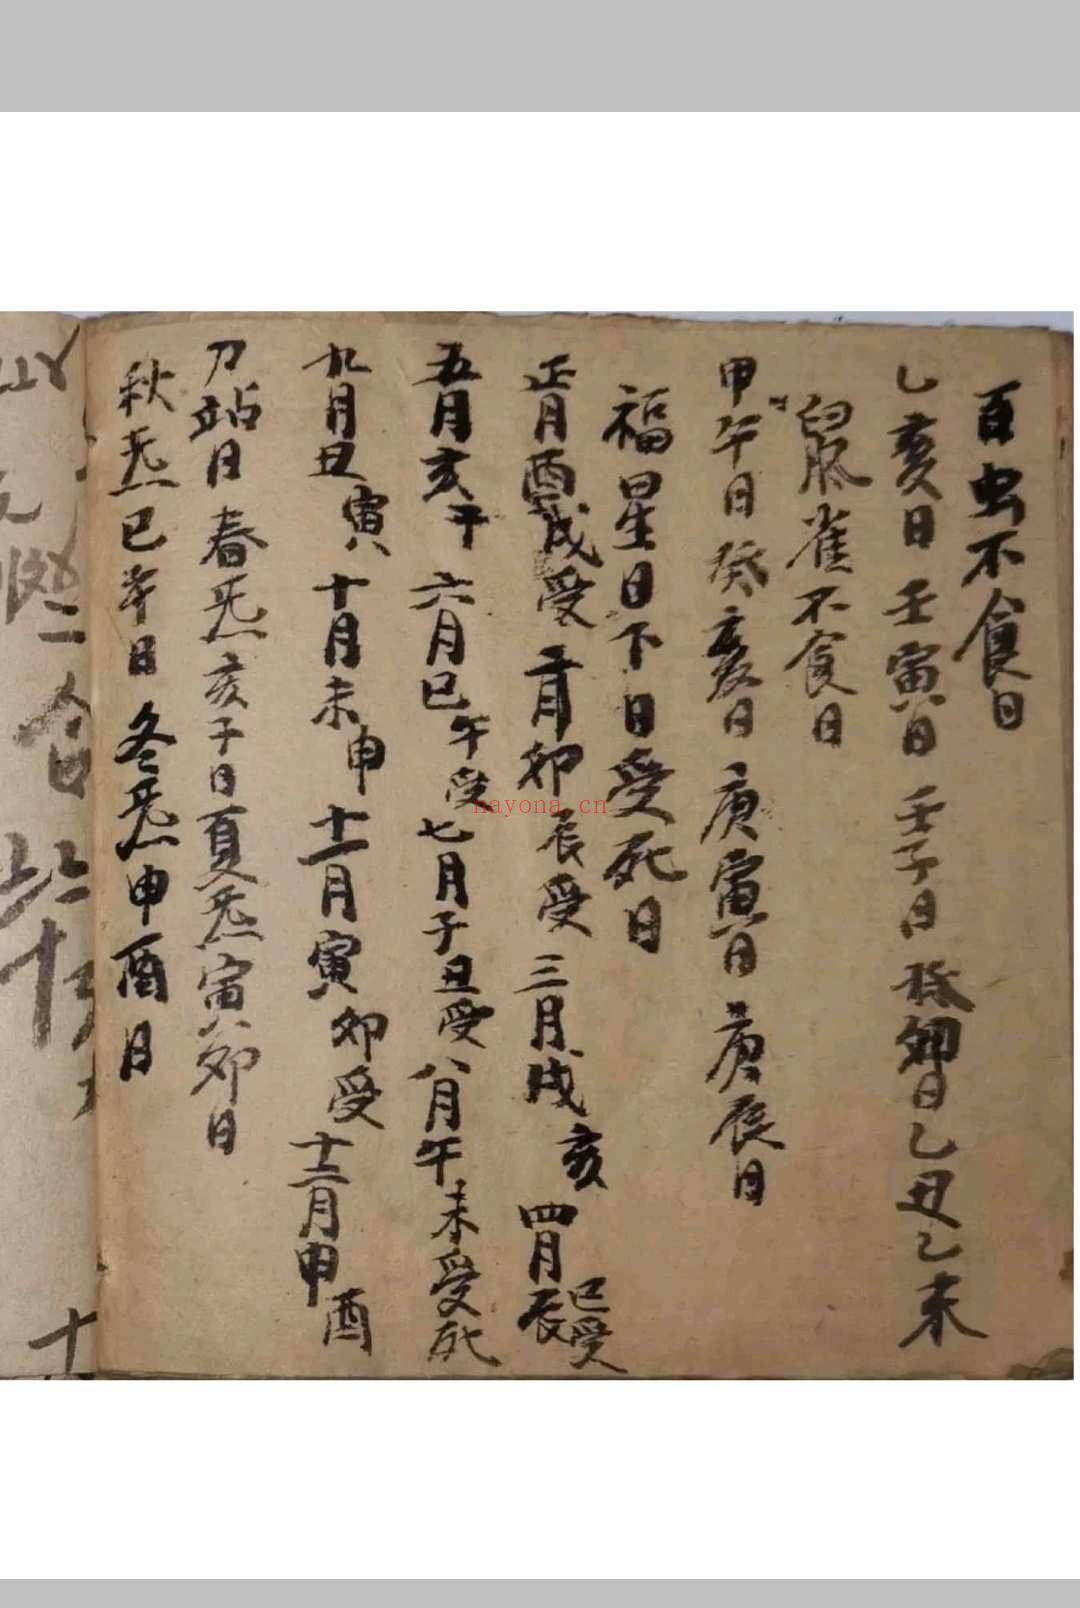 百虫不食日
乙亥日壬寅日壬子日癸卯日乙丑乙未
鼠雀不食日
甲午日癸亥日庚寅日庚辰日
福星日下日受死日
正月酉戌受二月卯辰受三月戌亥四月辰巳受
五月亥干六月巳午受七月子丑受八月午未受死
九月丑寅十月未申十一月寅卯受十二月申酉
刀站日春炁亥子日夏炁寅卯日
秋炁巳午日冬炁申酉日
nayona.cn